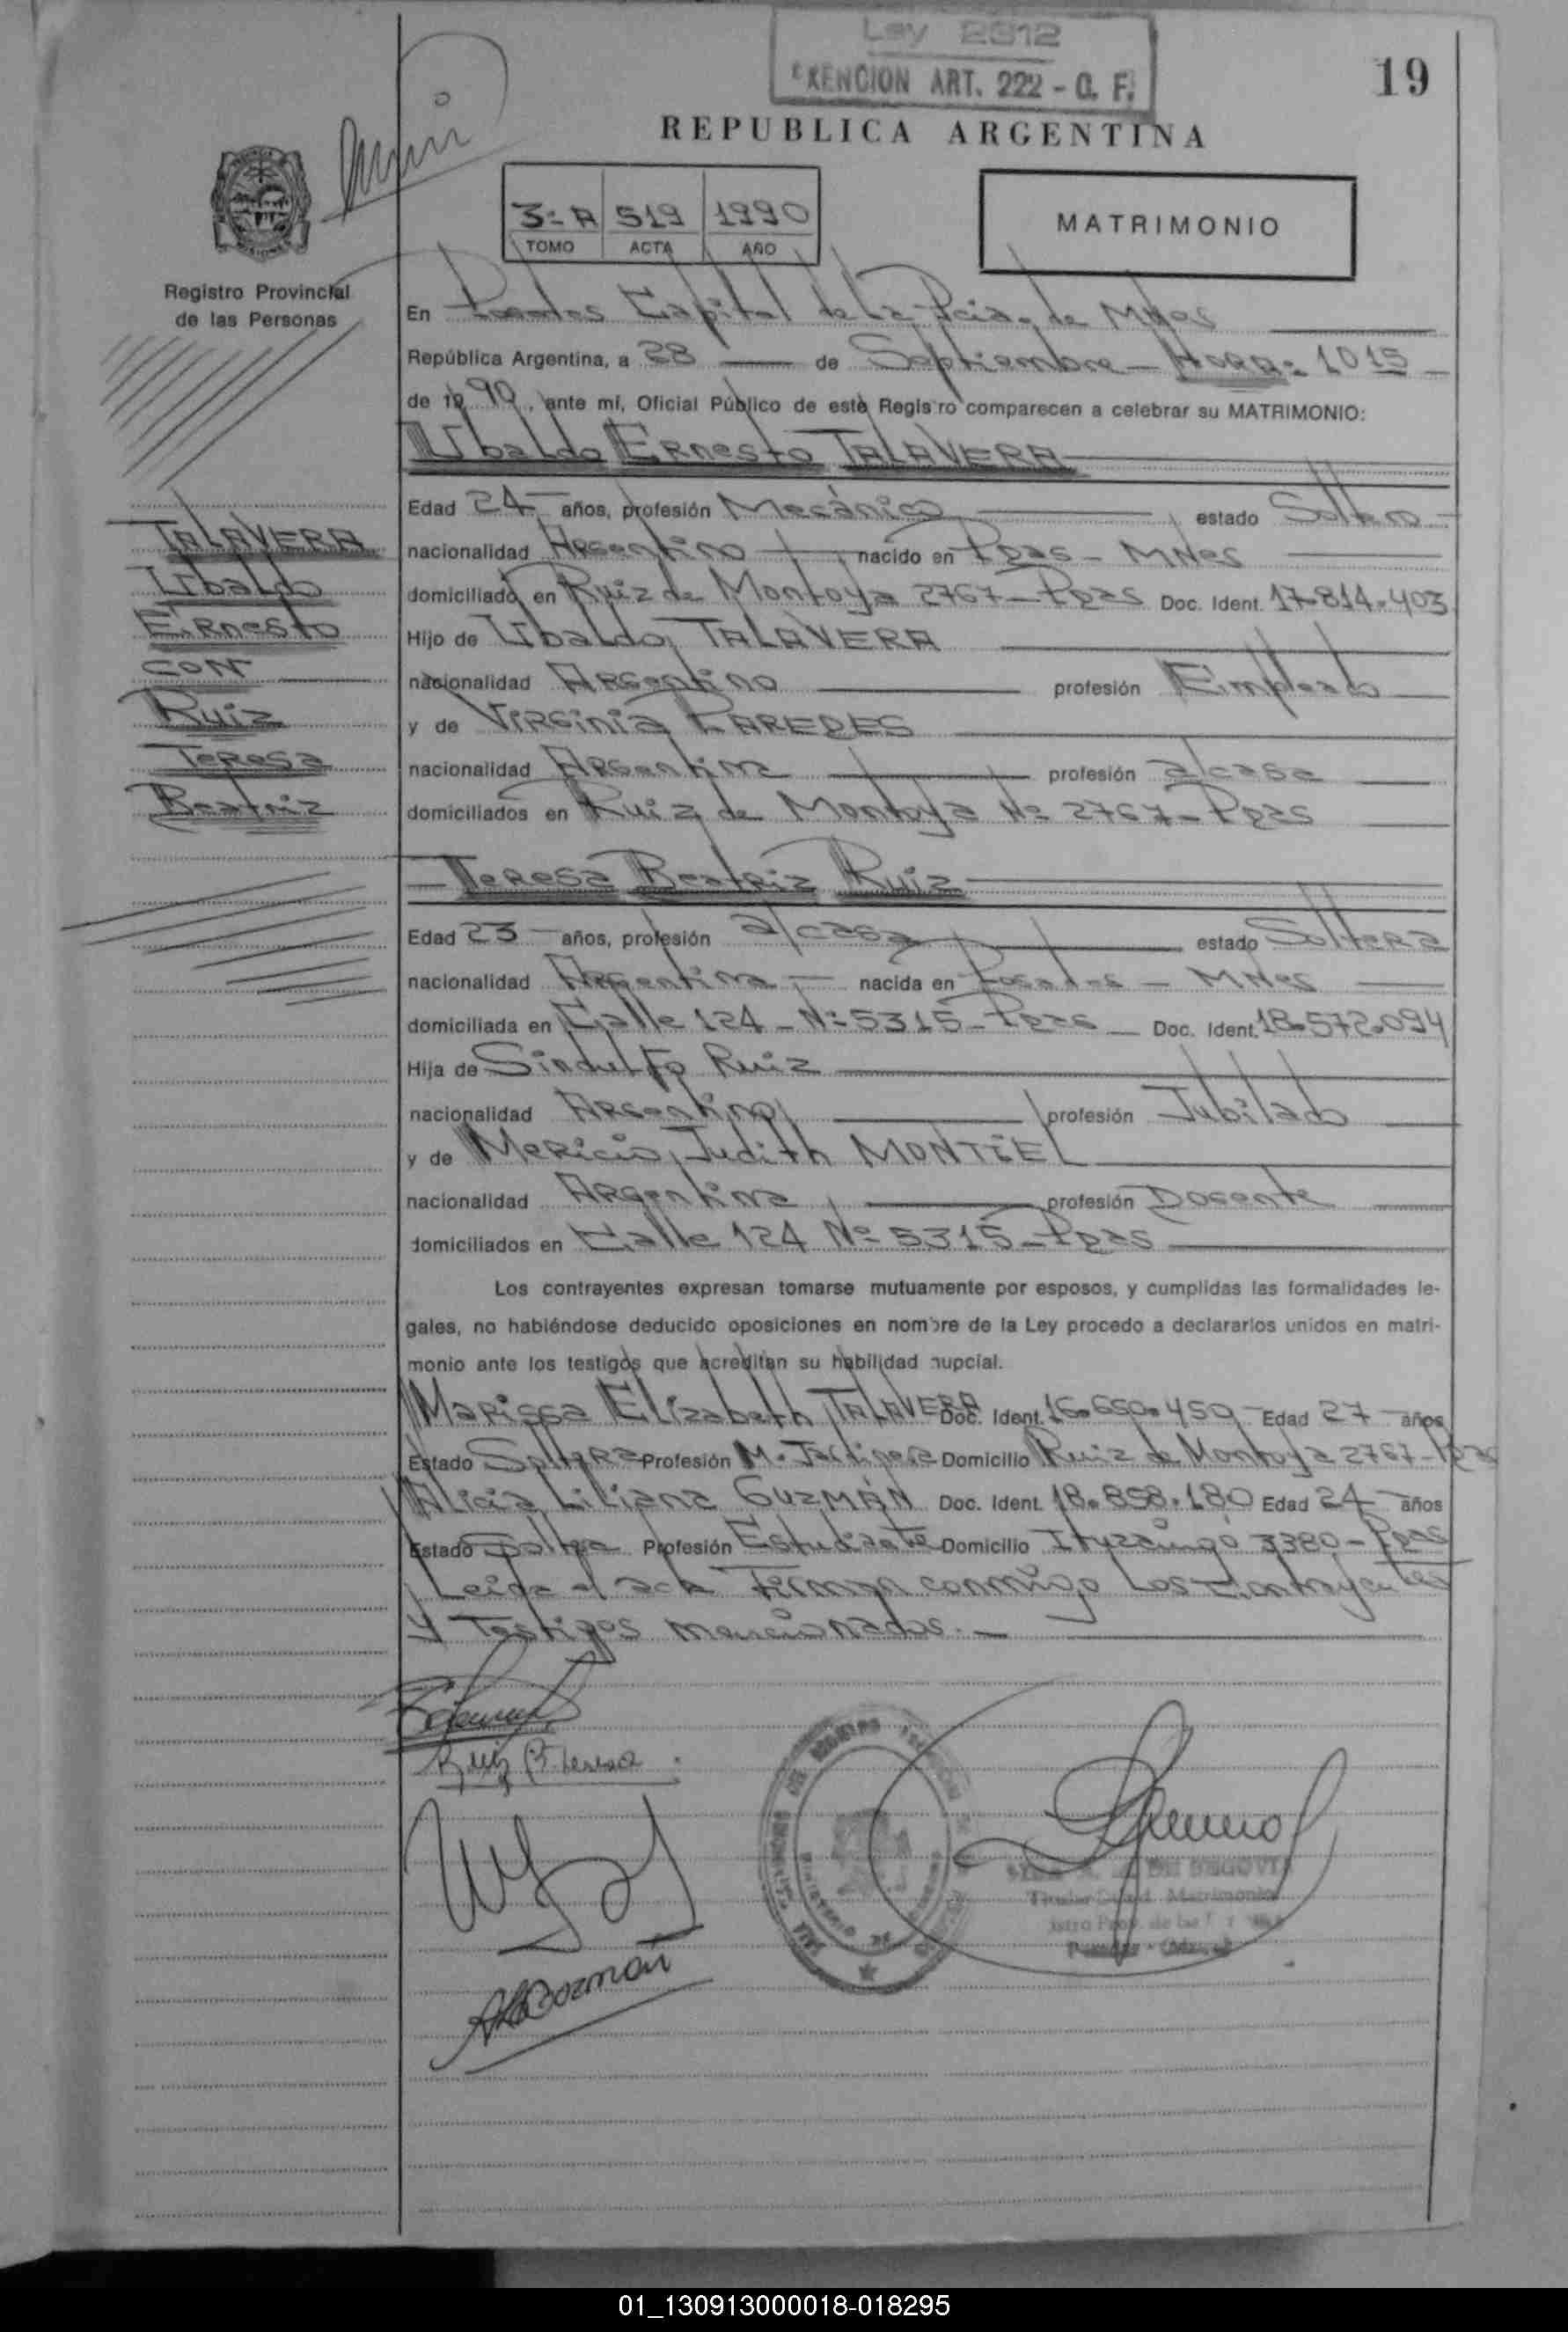 Ley 2312
EXENCION ART. 222 - C. F.
19
REPUBLICA ARGENTINA
3º A 519 1990
TOMO ACTA AÑO
MATRIMONIO
Registro Provincial
de las Personas
En Posadas Capital de la Pcia. de Mnes
República Argentina, a 28 de Septiembre - HORA: 1015
de 1990, ante mí, Oficial Público de este Registro comparecen a celebrar su MATRIMONIO:
Ubaldo Ernesto TALAVERA
TALAVERA
Ubaldo
Ernesto
CON
Ruiz
Teresa
Beatriz
Edad 24 años, profesión Mecánico estado Soltero
nacionalidad Argentino nacido en Pdas - Mnes
domiciliado en Ruiz de Montoya 2767 - Pdas Doc. Ident. 17.814.403
Hijo de Ubaldo TALAVERA
nacionalidad Argentino profesión Empleado
y de Virginia PAREDES
nacionalidad Argentina profesión a/casa
domiciliados en Ruiz de Montoya Nº 2767 - Pdas
Teresa Beatriz Ruiz
Edad 23 años, profesión a/casa estado Soltera
nacionalidad Argentina nacida en Posadas - Mnes
domiciliada en Calle 124 - Nº 5315 - Pdas Doc. Ident. 18.572.094
Hija de Sindulfo Ruiz
nacionalidad Argentino profesión Jubilado
y de Mericia Judith MONTIEL
nacionalidad Argentina profesión Docente
domiciliados en Calle 124 Nº 5315 - Pdas
Los contrayentes expresan tomarse mutuamente por esposos, y cumplidas las formalidades le-
gales, no habiéndose deducido oposiciones en nombre de la Ley procedo a declararlos unidos en matri-
monio ante los testigos que acreditan su habilidad nupcial.
Marissa Elizabeth TALAVERA Doc. Ident. 16.650.450 Edad 27 años
Estado Soltera Profesión M. Jardinera Domicilio Ruiz de Montoya 2767 - Pdas
Alicia Liliana GUZMÁN Doc. Ident. 18.858.180 Edad 24 años
Estado Soltera Profesión Estudiante Domicilio Ituzaingo 3380 - Pdas
Leida el acta Firman conmigo Los Contrayentes
y Testigos mencionados.
Ruiz B Teresa
DE SEGOVIA
Titular Matrimonios
Guzmán
01_130913000018-018295